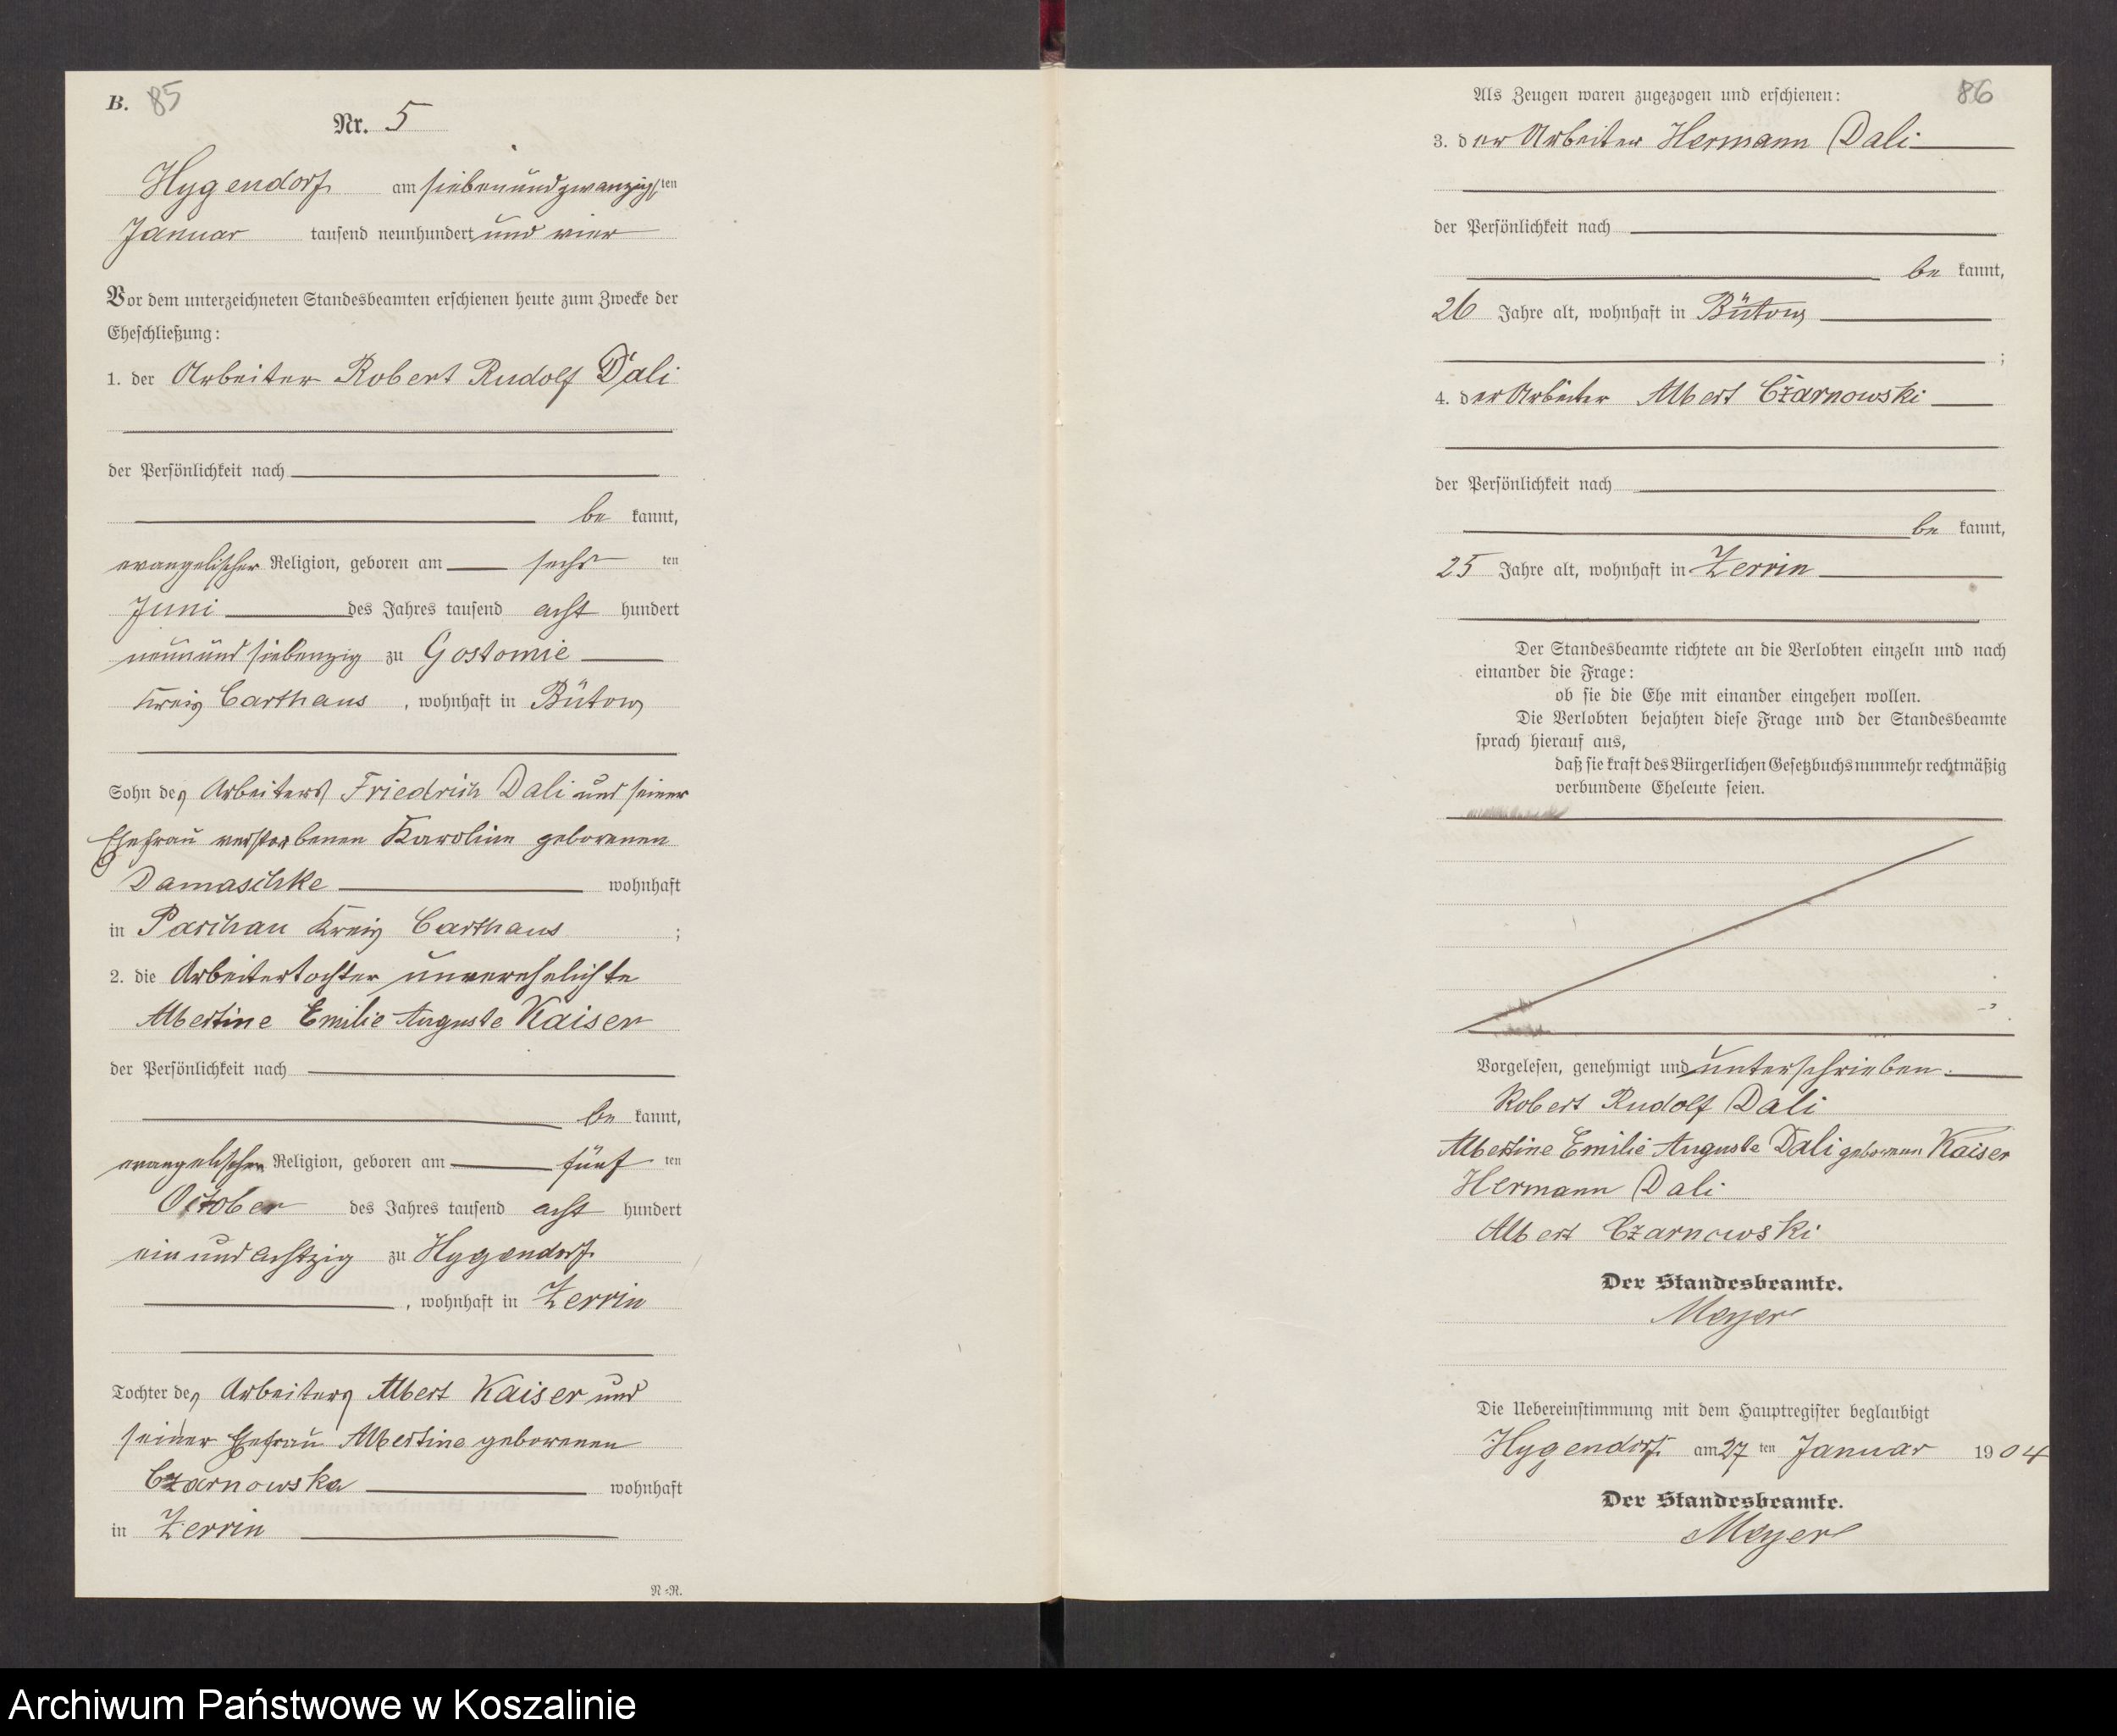 B. 85
Nr. 5
Hygendorf am siebenundzwanzigsten
Januar tausend neunhundert und vier
Vor dem unterzeichneten Standesbeamten erschienen heute zum Zwecke der
Eheschließung:
1. der Arbeiter Robert Rudolf Dali
der Persönlichkeit nach
be kannt,
evangelischer Religion, geboren am sechs ten
Juni des Jahres tausend acht hundert
neunundsiebenzig zu Gostomie
Kreis Carthaus, wohnhaft in Bütow
Sohn des Arbeiters Friedrich Dali und seiner
Ehefrau verstorbenen Karoline geborenen
Damaschke wohnhaft
in Parchau Kreis Carthaus ;
2. die Arbeitertochter unverehelichte
Albertine Emilie Auguste Kaiser
der Persönlichkeit nach
be kannt,
evangelischen Religion, geboren am fünf ten
October des Jahres tausend acht hundert
ein und achtzig zu Hygendorf
, wohnhaft in Zerrin
Tochter des Arbeiters Albert Kaiser und
seiner Ehefrau Albertine geborenen
Czarnowska wohnhaft
in Zerrin
N=R.
86
Als Zeugen waren zugezogen und erschienen:
3. der Arbeiter Hermann Dali
der Persönlichkeit nach
be kannt,
26 Jahre alt, wohnhaft in Bütow
;
4. der Arbeiter Albert Czarnowski
der Persönlichkeit nach
be kannt,
25 Jahre alt, wohnhaft in Zerrin
Der Standesbeamte richtete an die Verlobten einzeln und nach
einander die Frage:
ob sie die Ehe mit einander eingehen wollen.
Die Verlobten bejahten diese Frage und der Standesbeamte
sprach hierauf aus,
daß sie kraft des Bürgerlichen Gesetzbuchs nunmehr rechtmäßig
verbundene Eheleute seien.
Vorgelesen, genehmigt und unterschrieben.
Robert Rudolf Dali
Albertine Emilie Auguste Dali geborenen Kaiser
Hermann Dali
Albert Czarnowski
Der Standesbeamte.
Meyer
Die Uebereinstimmung mit dem Hauptregister beglaubigt
Hygendorf am 27 ten Januar 1904
Der Standesbeamte.
Meyer
Archiwum Państwowe w Koszalinie